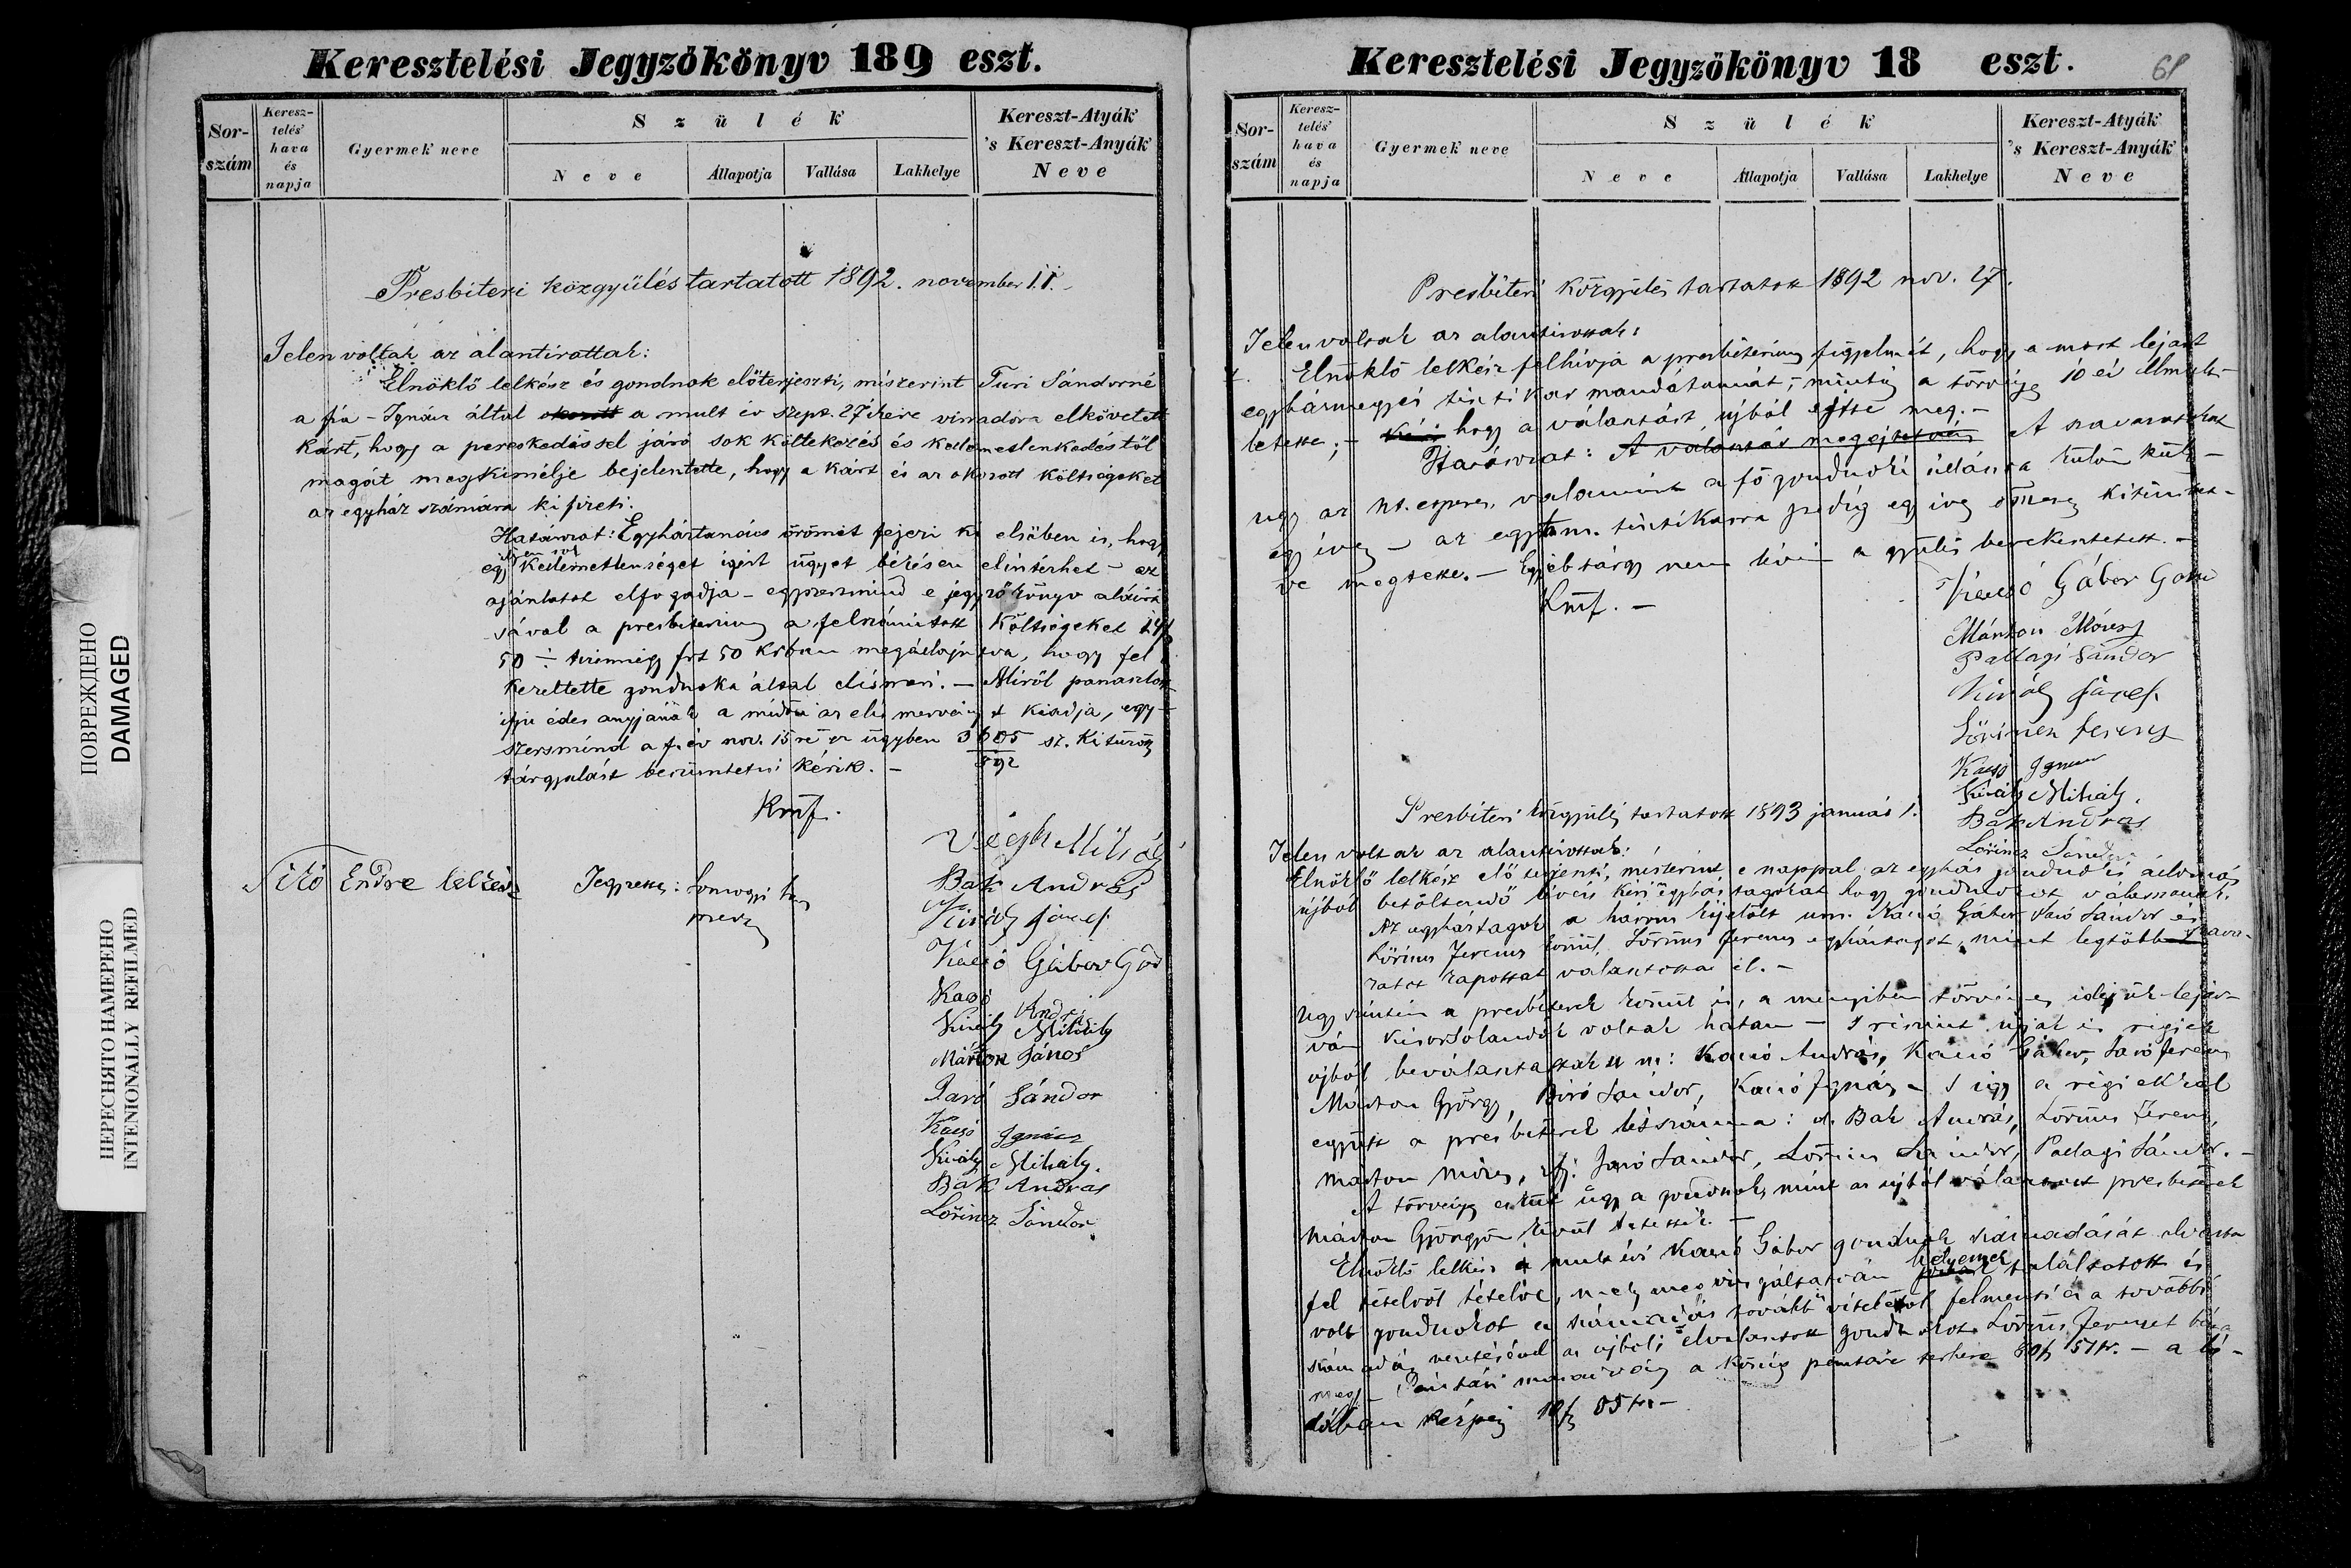 Keresztelési Jegyzökönyv 189 eszt.
Sor-
szám
Keresz-
telés'
hava
és
napja
Gyermek neve
Szülék
Neve
Állapotja
Vallása
Lakhelye
Kereszt-Atyák
's Kereszt-Anyák
Neve
Presbiteri közgyülés tartatott 1892. november 11.
Jelen voltak az alantirottak:
Elnöklő lelkész és gondnok előterjeszti, miszerint Turi Sándorné
a fia - Ignácz által okozott a mult év szept. 27ikére virradóra elkövetett
kárt, hogy a pereskedéssel járó sok költekezés és kellemetlenkedéstől
magát megkimélje bejelentette, hogy a kárt és az okozott költségeket
az egyház számára ki fizeti.
Határozat: Egyháztanács örömét fejezi ki elsőben is, hogy
egy kellemetlenséget igért ügyet békésen elintézhet - az
ajánlatot elfogadja - egyszersmind e jegyzőkönyv aláirá
sával a presbiterium a felszámitott költségeket 24f
50 frt 50 krban megállapitva, hogy fel
kezeltette gondnoka által elismeri. - Miről panaszlott
ifju édes anyjának a midőn az elismervényt kiadja, egy-
szersmind a f. év nov. 15re ez ügyben 3605 sz. kitüzött
892
tárgyalást beszüntetni kérik. -
Kmf.
Végh Mihály
Sikó Endre lelkész
Jegyezte: Somogyi
Bak András
Király József
Kacsó Gábor Gond
Kacsó András
Király Mihály
Márton János
Jaró Sándor
Kacsó Ignácz
Király Mihály.
Bak András
Lőrincz Sándor
Keresztelési Jegyzökönyv 18 eszt.
61
Sor-
szám
Keresz-
telés'
hava
és
napja
Gyermek neve
Szülék
Neve
Állapotja
Vallása
Lakhelye
Kereszt-Atyák
's Kereszt-Anyák
Neve
Presbiteri közgyülés tartatott 1892 nov. 27.
Jelen voltak az alantirottak:
Elnöklő lelkész felhivja a presbiterium figyelmét, hogy a most lejárt
egyházmegyei tisztikar mandátumát, mintán a törvényes 10 év elmult
letette; - hogy a választást ujból ejtse meg. -
Határozat: A választás megejtetvén A szavazatokat
ugy az nt. esperes, valamint a fő gondnoki állásra külön külön
egy iven - az egyházm. tisztikarra pedig egy iven
be megtette. - Egyéb tárgy nem lévén a gyülés berekesztetett. -
Kmf. -
Kacsó Gábor Gond
Márton Mózes
Pallagi Sándor
Király József
Lőrincz Ferencz
Kacsó Ignácz
Király Mihály.
Bak András
Lőrincz Sándor
Presbiteri közgyülés tartatott 1893 január 1.
Jelen voltak az alantirottak:
Elnöklő lelkész elő terjeszti, miszerint e nappal az egyház gondnoki állomás
ujból betöltendő lévén kéri egyház tagokat hogy gondnokot válasszanak.
Az egyháztagok a három kijelölt um. Kacsó Gábor Jaró Sándor és
Lőrincz Ferencz közül, Lőrincz Ferencz egyháztagot, mint legtöbb szava-
zatot kapottat választotta el. -
Ugy szintén a presbiterek közül is, a menyiben törvényes idejük lejár-
ván kisorsolandók voltak hatan - s részint ujak és régiek
ujból beválasztattak u m: Kacsó András, Kacsó Gábor, Jaró Ferencz
Márton György, Biró Sándor, Kacsó Ignácz - s igy a régiekkel
együtt a presbiterek létszáma: Bak András, Lőrincz Ferencz,
Márton Mózes, ifj. Jaró Sándor, Lőrincz Sándor, Pallagi Sándor. -
A törvényes esküt ugy a gondnok, mint az ujból választott presbiterek
Márton Györgyön kivül letették. -
Elnöklő lelkész a mult évi Kacsó Gábor gondnok számadását olvasta
fel tételről tételre, mely megvizsgáltatván helyesnek találtatott és
volt gondnokot a számadás tovább vitelétől felmenti és a további
számadás vezetésével az ujból elválasztott gondnokot Lőrincz Ferenczet bizza
meg - Pénztári maradvány a közügy pénztára terhére 80f 51kr. - a lá-
dában készpénz 10f 05kr -
ПОВРЕЖДЕНО
DAMAGED
ПЕРЕСНЯТО НАМЕРЕНО
INTENIONALLY REFILMED